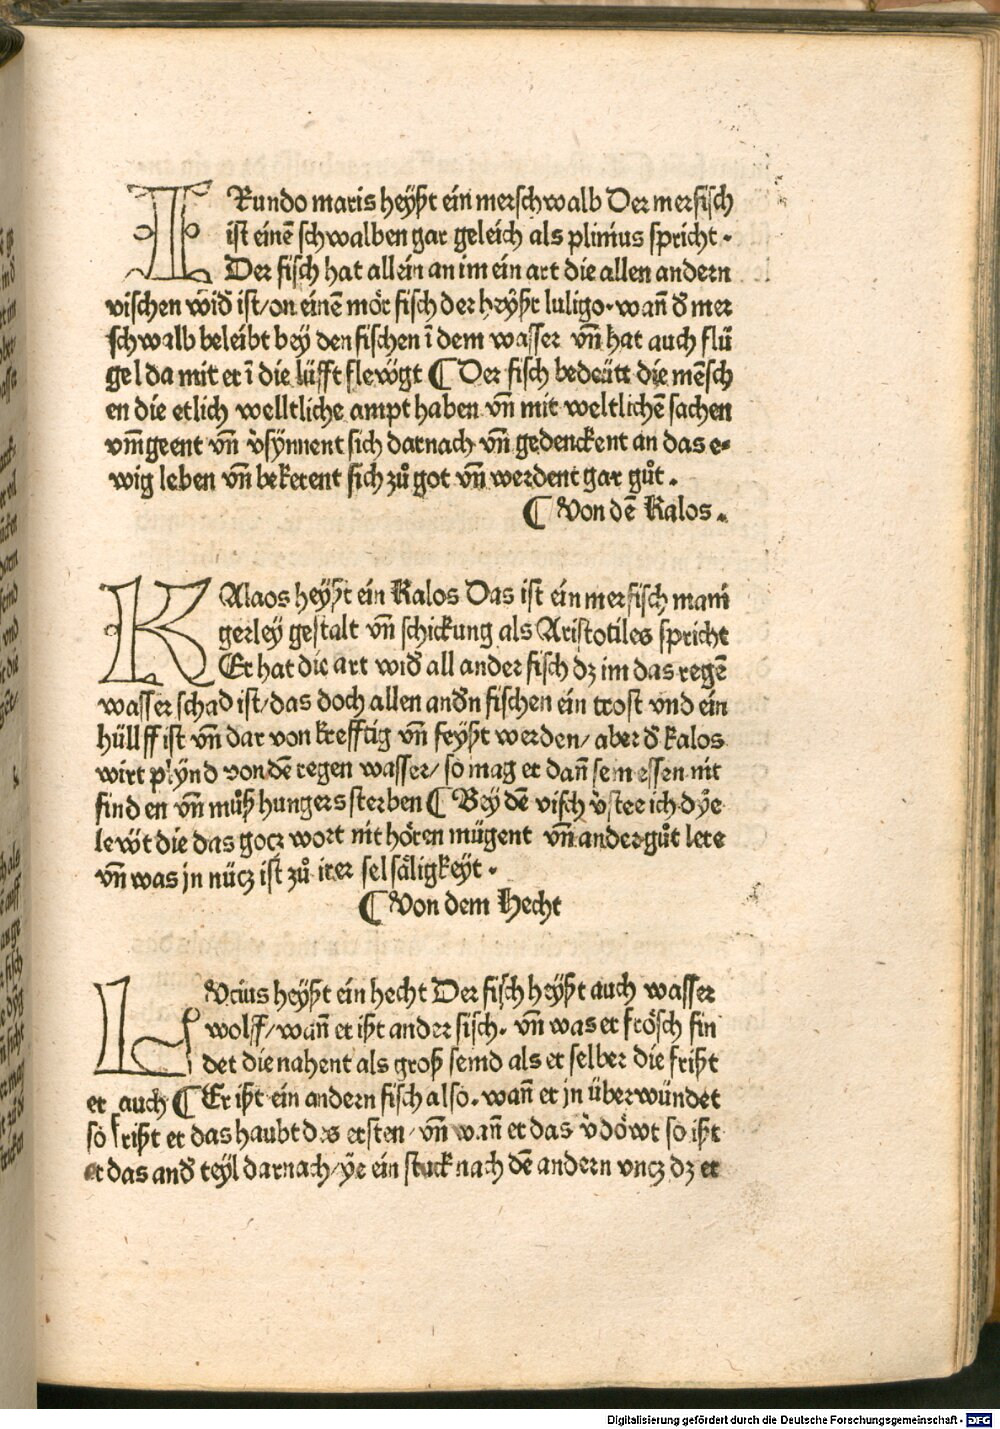 IRundo maris heyßt ein merschwalb Der merfisch
ist einē schwalben gar geleich als plinius spricht.
Der fisch hat allein an im ein art die allen andern
vischen wid̄ ist/on einē mör fisch der heyßt luligo.wañ d̄ mer
schwalb beleibt bey den fischen ī dem wasser vñ hat auch flü
gel da mit er ī die lüfft flewgt ¶ Der fisch bedeütt die mēsch
en die etlich welltliche ampt haben vñ mit weltlichē sachen
vm̄geent vñ v̓synnent sich darnach vñ gedenckent an das e⸗
wig leben vñ bekerent sich zů got vñ werdent gar gůt.
¶ Von dē Kalos.
KAlaos heyßt ein Kalos Das ist ein merfisch mani
gerley gestalt vñ schickung als Aristotiles spricht
Er hat die art wid̄ all ander fisch dz im das regē
wasser schad ist/das doch allen and̄n fischen ein trost vnd ein
hüllff ist vñ dar von krefftig vñ feyßt werden/ aber d̄ kalos
wirt plynd von dē regen wasser/ so mag er dañ sem essen nit
find en vñ můß hungers sterben ¶ Bey dē visch v̓stee ich dye
lewt die das gocz wort nit hören mügent vñ ander gůt lere
vñ was jn nücz ist zů irer sel säligkeyt.
¶ Von dem Hecht
LVcius heyßt ein hecht Der fisch heyßt auch wasser
wolff/wañ er ißt ander fisch. vñ was er frösch fin
det die nahent als groß semd als er selber die frißt
er auch ¶ Er ißt ein andern fisch also.wañ er jn überwündet
so frißt er das haubt des ersten/vñ wañ er das v̓döwt so ißt
er das and̄ teyl darnach/ye ein stuck nach dē andern vncz dz er
Digitalisierung gefördert durch die Deutsche Forschungsgemeinschaft - DFG